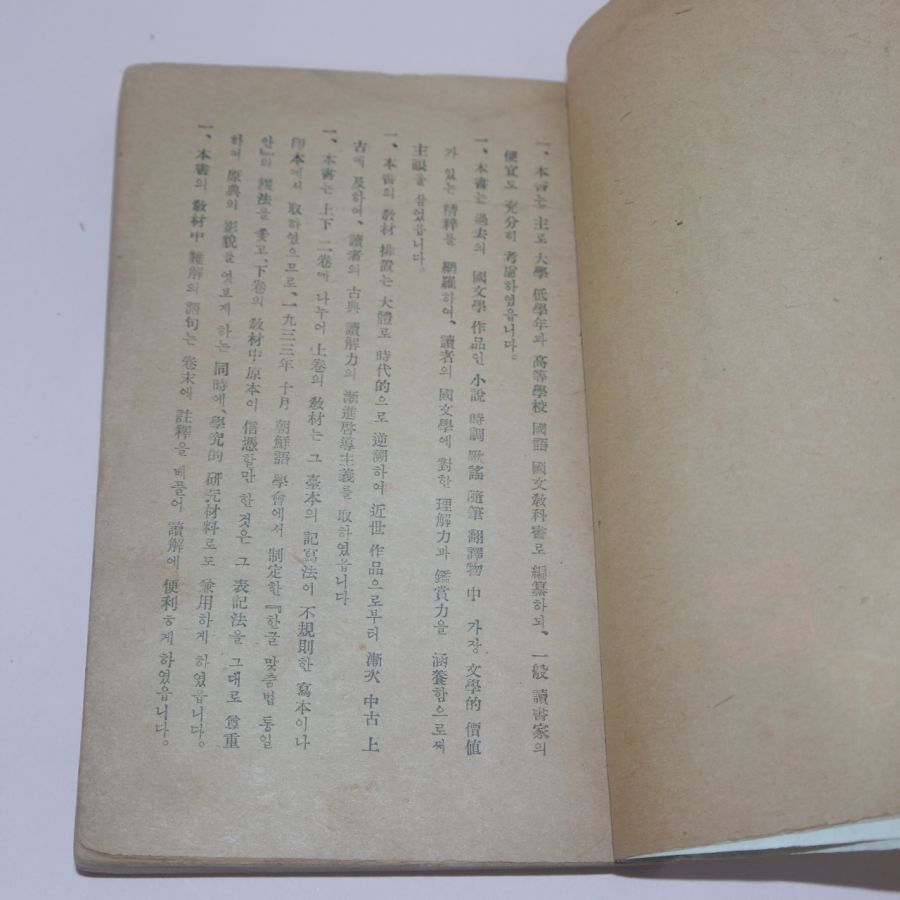 一、本書는 主로 大學 低學年과 高等學校 國語 國文敎科書로 編纂하되、一般 讀書家의
便宜도 充分히 考慮하였읍니다。
一、本書는 過去의 國文學 作品인 小說 時調 歌謠 隨筆 翻譯物 中 가장 文學的 價値
가 있는 精粹를 網羅하여、讀者의 國文學에 對한 理解力과 鑑賞力을 涵養함으로써
主眼을 삼었읍니다。
一、本書의 敎材 排置는 大體로 時代的으로 逆溯하여 近世 作品으로부터 漸次 中古 上
古에 及하여、讀者의 古典 讀解力의 漸進啓導主義를 取하였읍니다
一、本書는 上下 二卷에 나누어 上卷의 敎材는 그 臺本의 記寫法이 不規則한 寫本이나
印本에서 取하였으므로、一九三三年 十月 朝鮮語 學會에서 制定한『한글 맞춤법 통일
안』의 綴法을 좇고、下卷의 敎材中 原本이 信憑할만 한 것은 그 表記法을 그대로 尊重
하여 原典의 影貌를 엿보게 하는 同時에、學究的 硏究材料로도 兼用하게 하였읍니다。
一、本書의 敎材中 難解의 語句는 卷末에 註釋을 베풀어 讀解에 便利ㅎ게 하였읍니다。